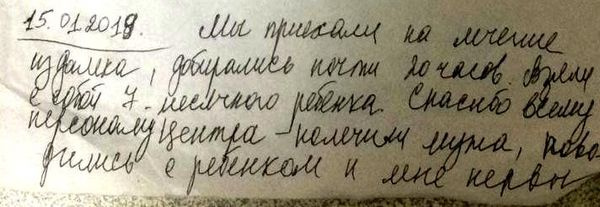 15.01.2019. Мы приехали на лечение
издалека, добирались почти 20 часов. Взяли
с собой 7-месячного ребенка. Спасибо всему
персоналу центра - полечили мужа, пово-
дились с ребенком и мне нервы